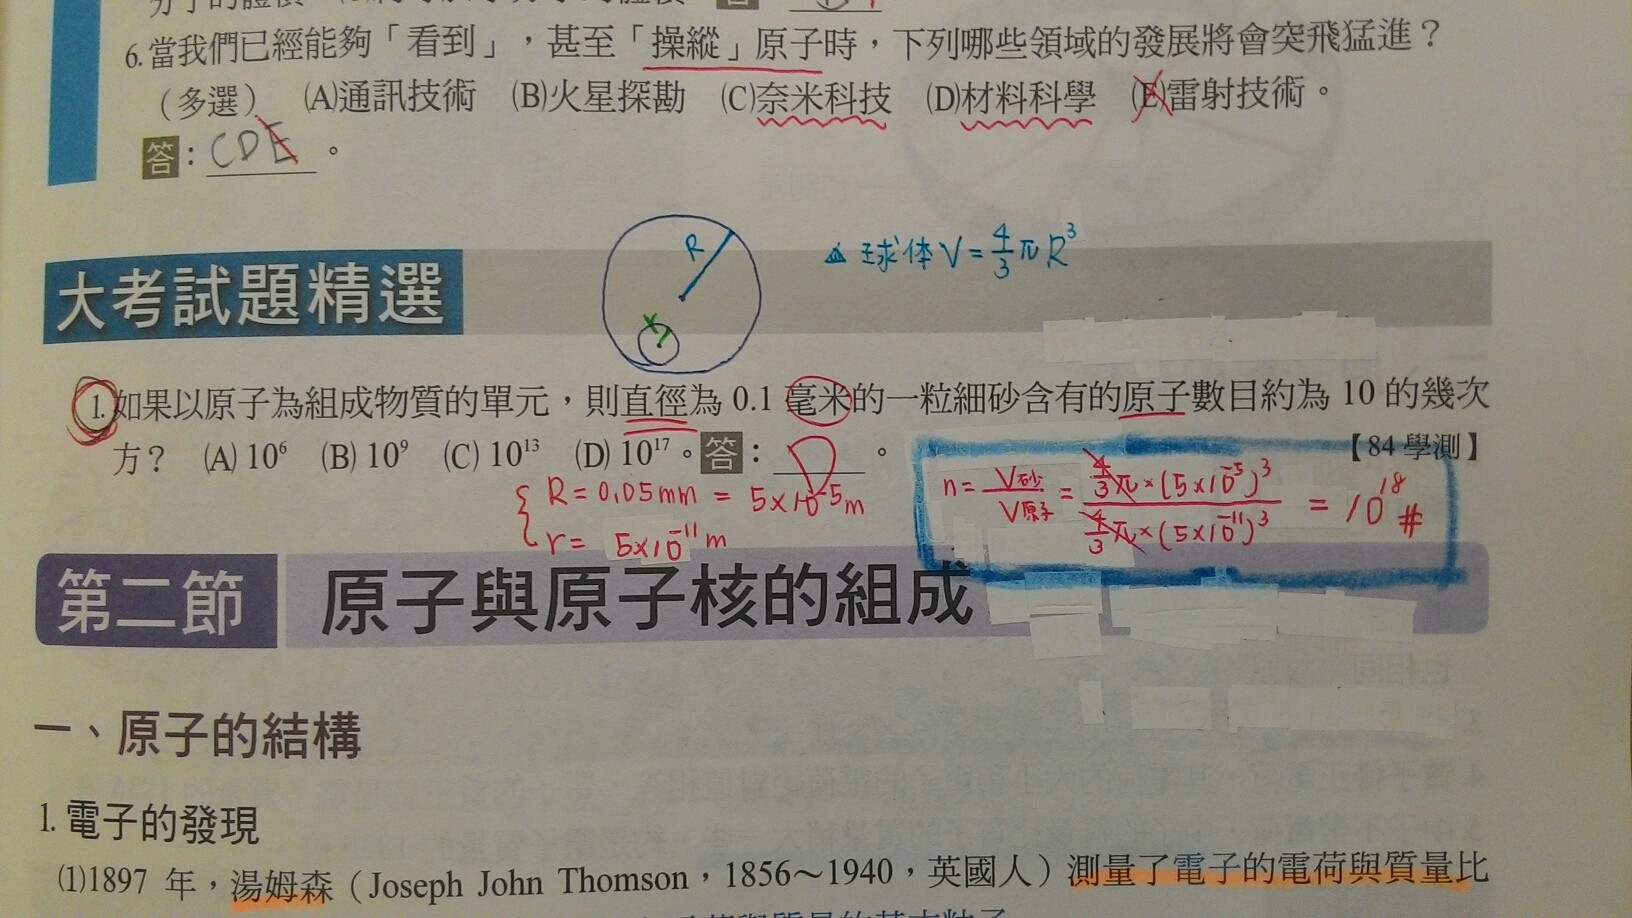 6.當我們已經能夠「看到」，甚至「操縱」原子時，下列哪些領域的發展將會突飛猛進？
（多選） (A)通訊技術 (B)火星探勘 (C)奈米科技 (D)材料科學 (E)雷射技術。
答：CDE。
R
r
球体 V = 4/3 π R³
大考試題精選
1.如果以原子為組成物質的單元，則直徑為 0.1 毫米的一粒細砂含有的原子數目約為 10 的幾次
方？ (A) 10⁶ (B) 10⁹ (C) 10¹³ (D) 10¹⁷。答：D。 【84 學測】
{ R = 0.05mm = 5×10⁻⁵m
r = 5×10⁻¹¹ m
n = V砂/V原子 = 4/3 π×(5×10⁻⁵)³ / 4/3 π×(5×10⁻¹¹)³ = 10¹⁸ #
第二節 原子與原子核的組成
一、原子的結構
1.電子的發現
(1)1897 年，湯姆森（Joseph John Thomson，1856～1940，英國人）測量了電子的電荷與質量比